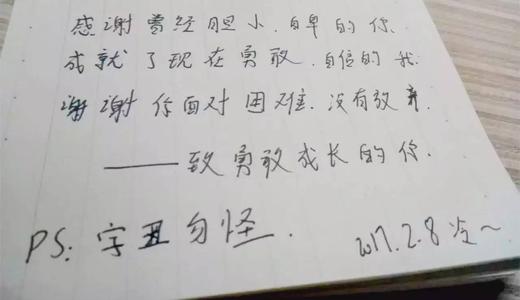 感谢曾经胆小、自卑的你
成就了现在勇敢、自信的我.
谢谢你面对困难、没有放弃.
——致勇敢成长的你.
PS: 字丑勿怪.
2017.2.8 冷~